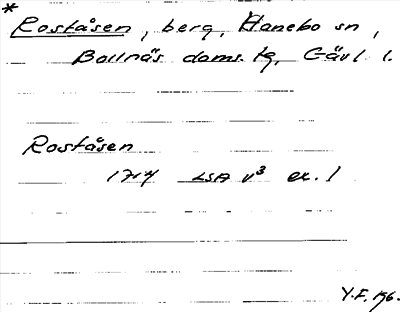 *
Roståsen, berg, Hanebo sn,
Bollnäs doms. tg, Gävl. l.
Roståsen
1714 LSA v³ ex. 1
Y.F. 196.